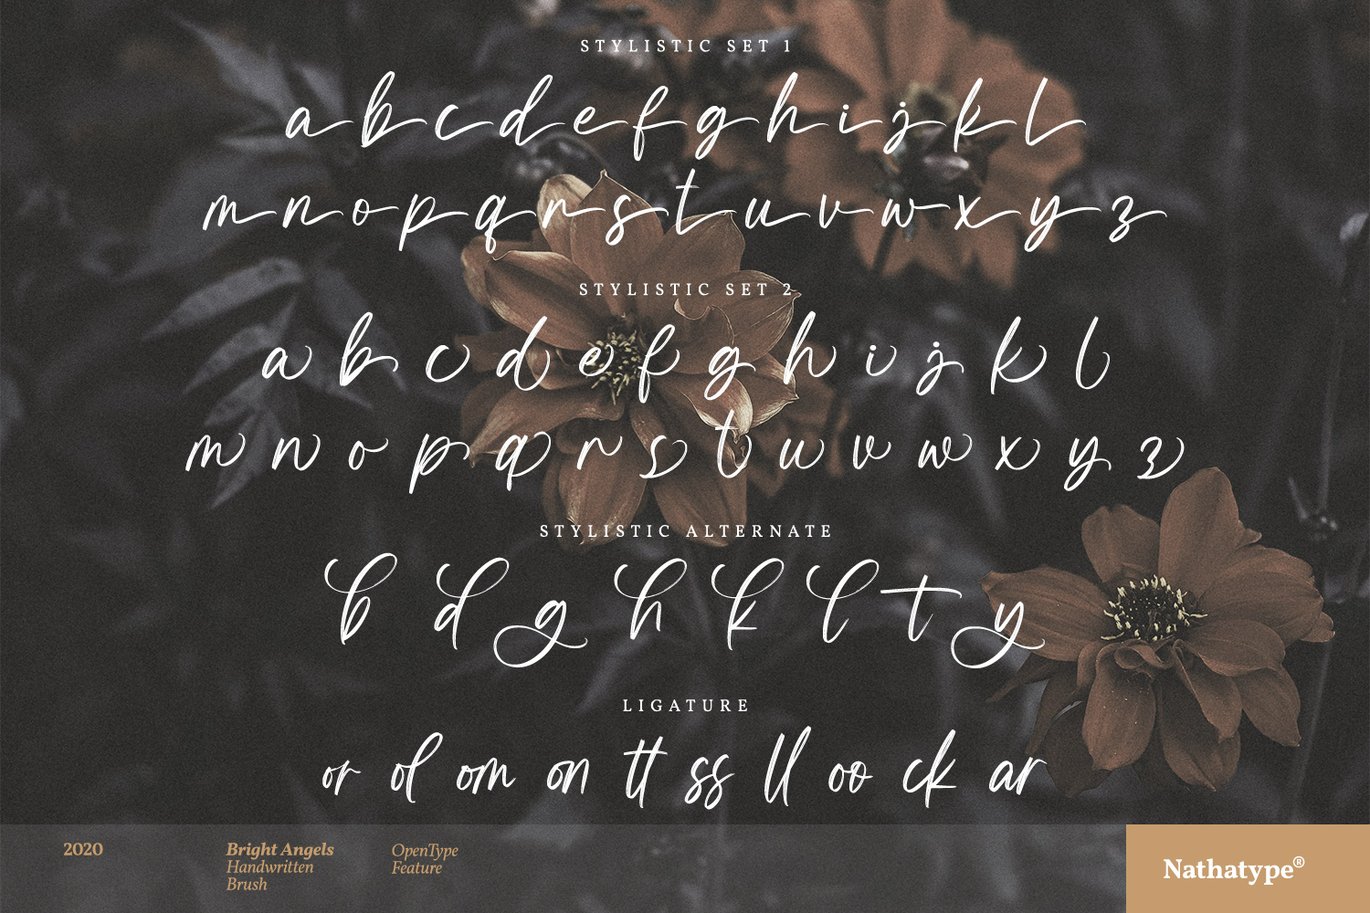 STYLISTIC SET 1
a b c d e f g h i j k l
m n o p q r s t u v w x y z
STYLISTIC SET 2
a b c d e f g h i j k l
m n o p q r s t u v w x y z
STYLISTIC ALTERNATE
b d g h k l t y
LIGATURE
or ol om on tt ss ll oo ck ar
2020
Bright Angels
Handwritten
Brush
OpenType
Feature
Nathatype®